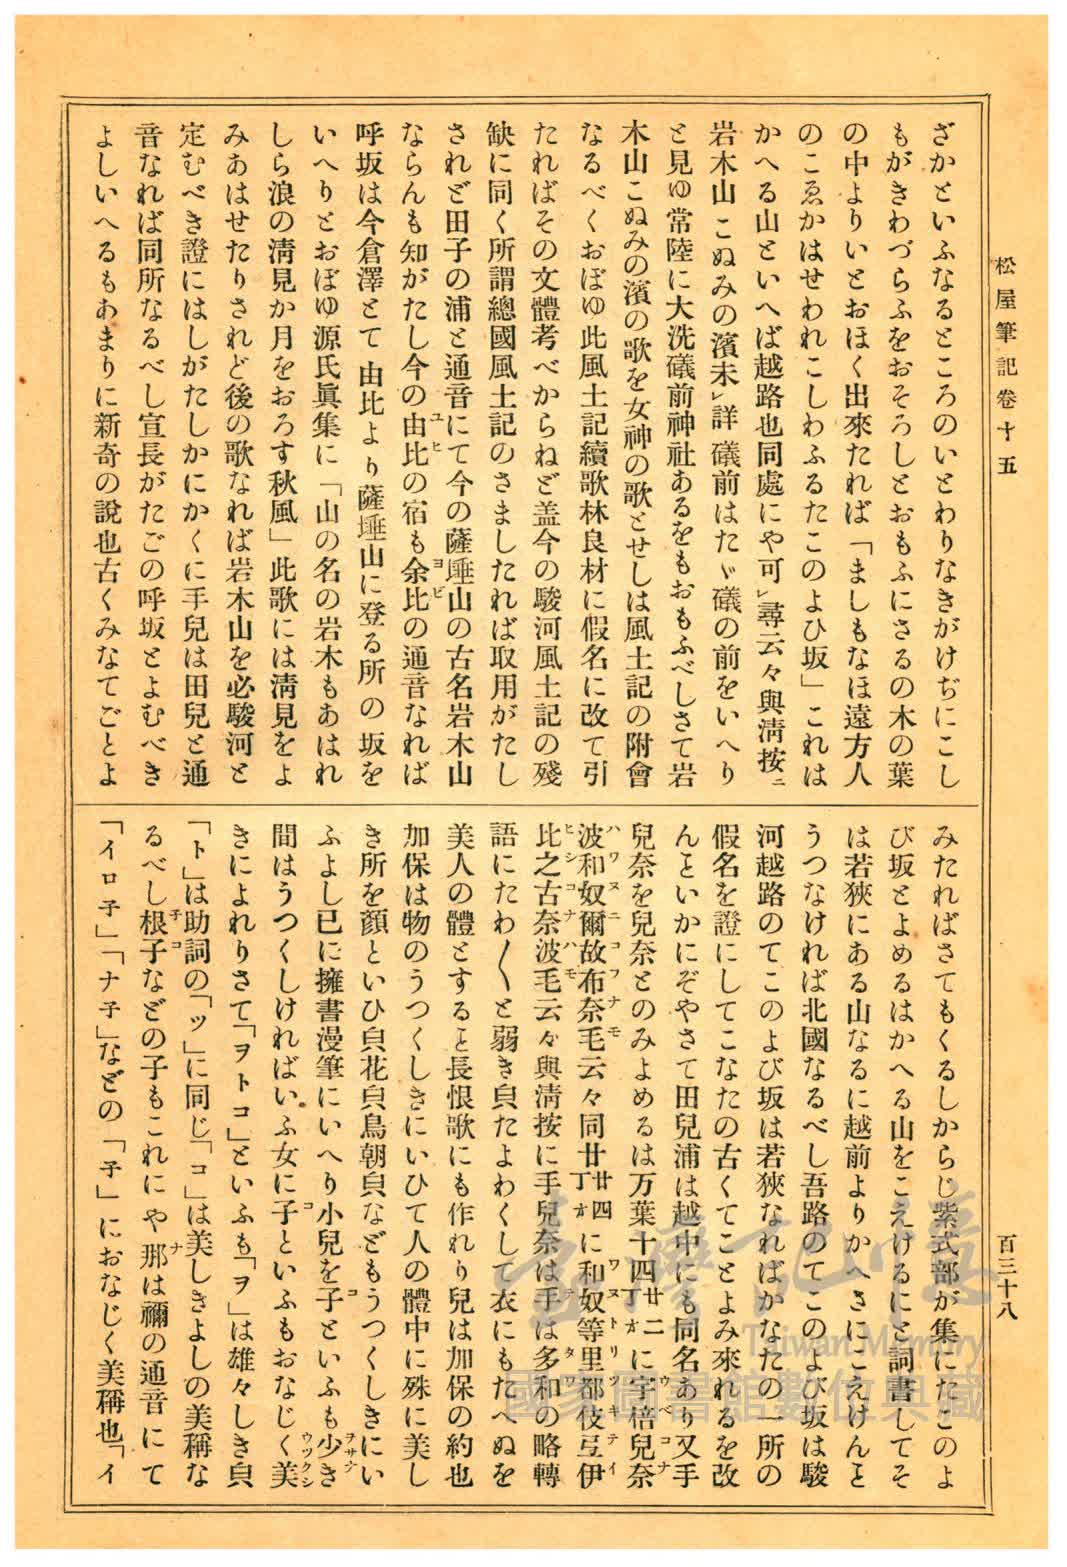 松屋筆記卷十五
百三十八
ざかといふなるところのいとわりなきがけぢにこし
もがきわづらふをおそろしとおもふにさるの木の葉
の中よりいとおほく出來たれば「ましもなほ遠方人
のこゑかはせわれこしわふるたこのよひ坂」これは
かへる山といへば越路也同處にや可㆑尋云々與淸按ニ
岩木山こぬみの濱未㆑詳礒前はたゞ礒の前をいへり
と見ゆ常陸に大洗礒前神社あるをもおもふべしさて岩
木山こぬみの濱の歌を女神の歌とせしは風土記の附會
なるべくおぼゆ此風土記續歌林良材に假名に改て引
たればその文體考べからねど盖今の駿河風土記の殘
缺に同く所謂總國風土記のさましたれば取用がたし
されど田子の浦と通音にて今の薩埵山の古名岩木山
ならんも知がたし今の由比の宿も余比の通音なれば
呼坂は今倉澤とて由比より薩埵山に登る所の坂を
いへりとおぼゆ源氏眞集に「山の名の岩木もあはれ
しら浪の淸見か月をおろす秋風」此歌には淸見をよ
みあはせたりされど後の歌なれば岩木山を必駿河と
定むべき證にはしがたしかにかくに手兒は田兒と通
音なれば同所なるべし宣長がたごの呼坂とよむべき
よしいへるもあまりに新奇の說也古くみなてごとよ
みたればさてもくるしからじ紫式部が集にたこのよ
び坂とよめるはかへる山をこえけるにと詞書してそ
は若狹にある山なるに越前よりかへさにこえけんと
うつなければ北國なるべし吾路のてこのよび坂は駿
河越路のてこのよび坂は若狹なればかなたの一所の
假名を證にしてこなたの古くてことよみ來れるを改
んといかにぞやさて田兒浦は越中にも同名あり又手
兒奈を兒奈とのみよめるは万葉十四廿二丁ォに宇倍兒奈
波和奴爾故布奈毛云々同廿四丁ォに和奴等里都伎弖伊
比之古奈波毛云々與淸按に手兒奈は手は多和の略轉
語にたわ〱と弱き㒵たよわくして衣にもたへぬを
美人の體とすると長恨歌にも作れり兒は加保の約也
加保は物のうつくしきにいひて人の體中に殊に美し
き所を顏といひ㒵花㒵鳥朝㒵などもうつくしきにい
ふよし已に擁書漫筆にいへり小兒を子といふも少き
間はうつくしければいふ女に子といふもおなじく美
きによれりさて「ヲトコ」といふも「ヲ」は雄々しき㒵
「ト」は助詞の「ツ」に同じ「コ」は美しきよしの美稱な
るべし根子などの子もこれにや那は禰の通音にて
「イロ子」「ナ子」などの「子」におなじく美稱也「イ